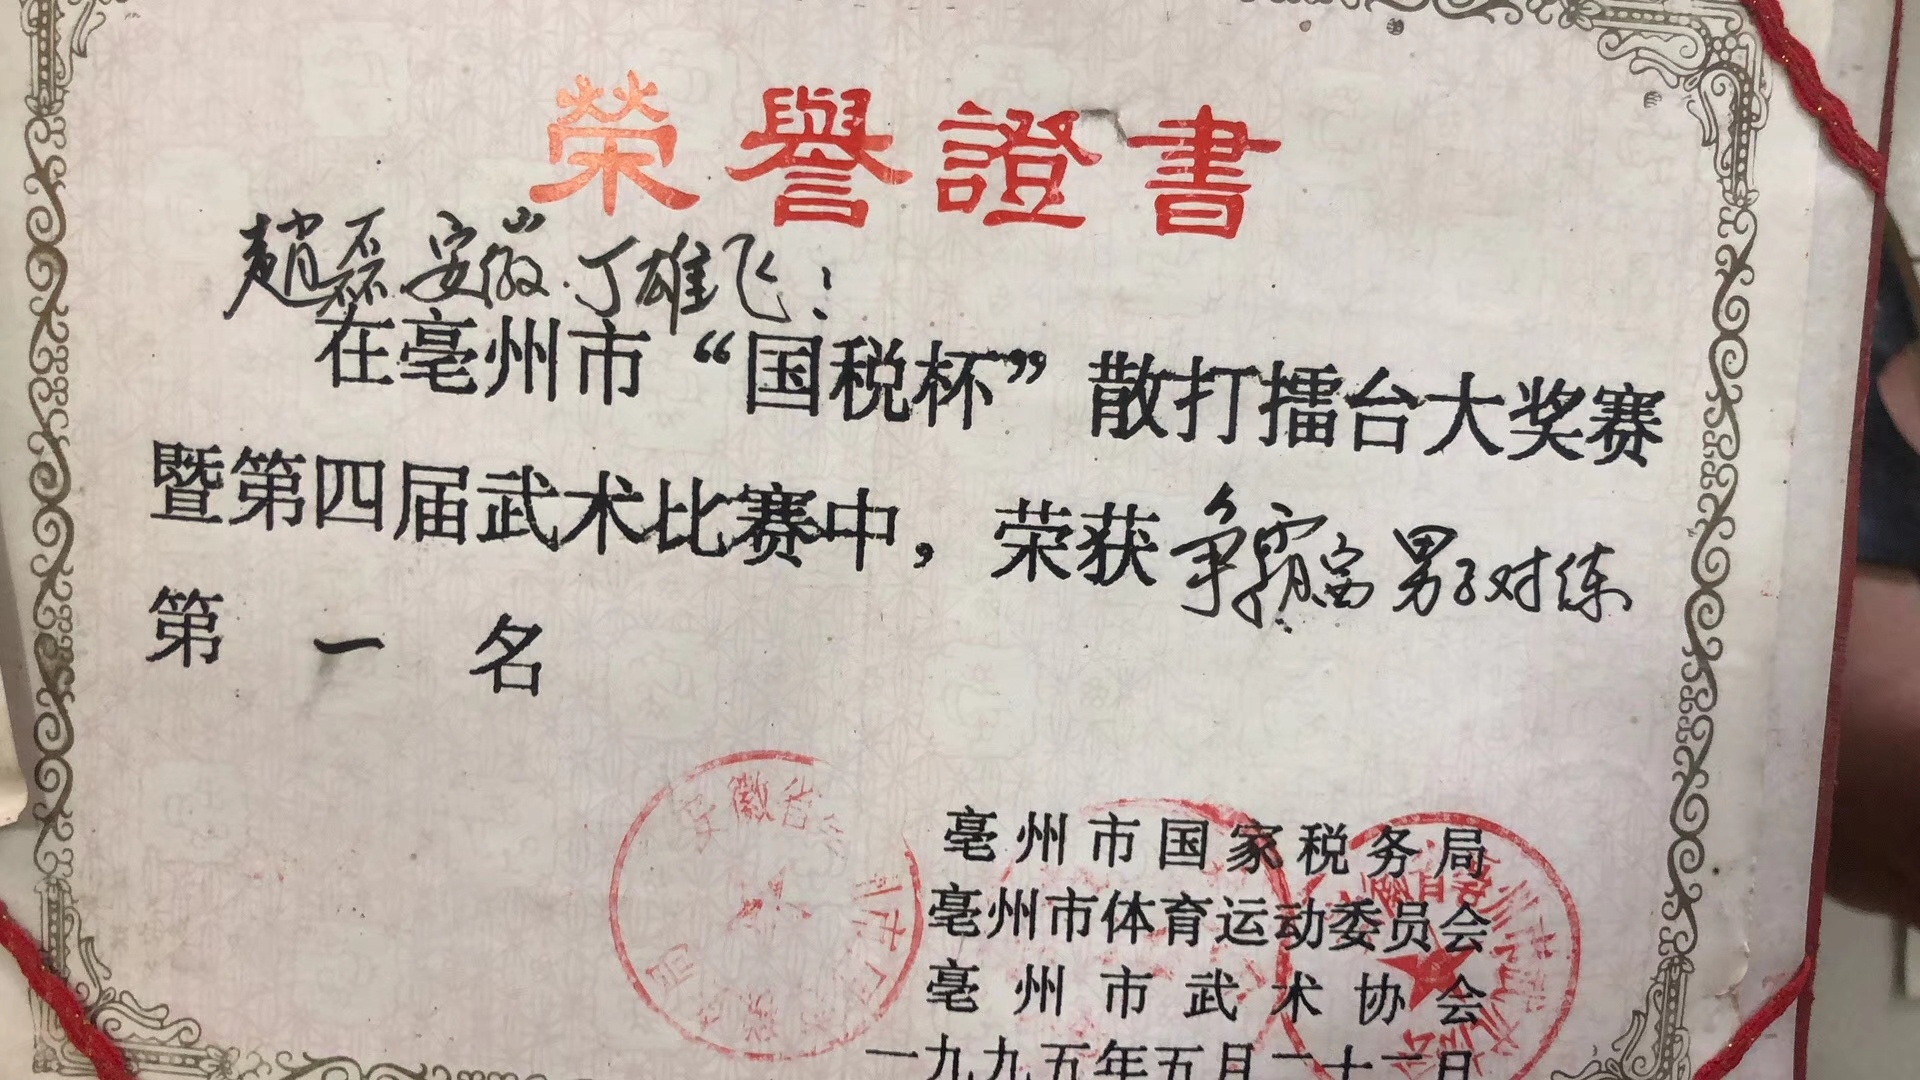 榮譽證書
趙磊 安徽 丁雄飞：
在亳州市“国税杯”散打擂台大奖赛
暨第四届武术比赛中，荣获争霸宫男子对练
第 一 名
安徽省
亳州市国家税务局
亳州市体育运动委员会
亳州市武术协会
一九九五年五月二十二日